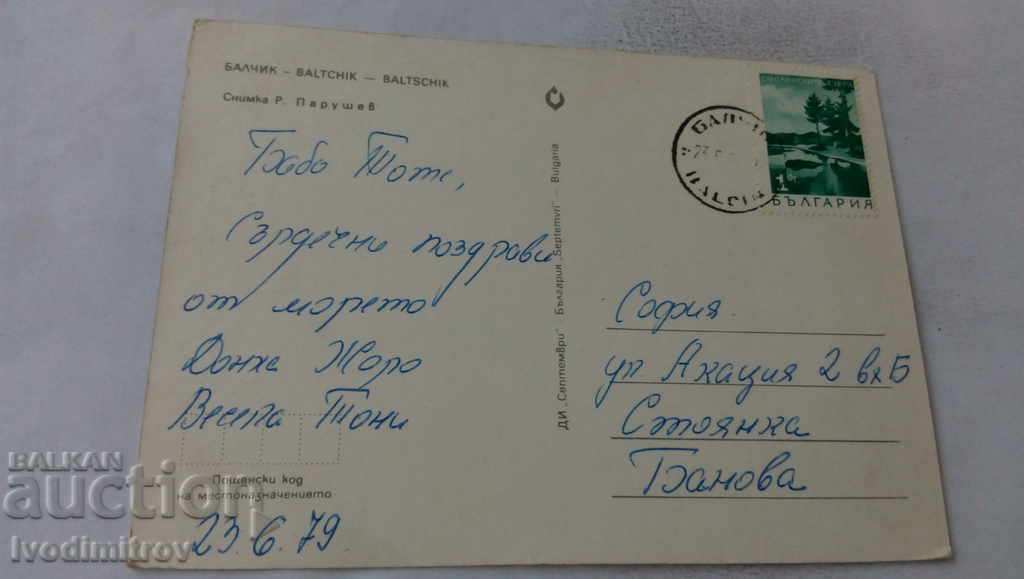 БАЛЧИК – BALTCHIK – BALTSCHIK
Снимка Р. Парушев
Бабо Тоте,
Сърдечни поздрави
от морето
Донка Жоро
Весела Тони
Пощенски код
на местоназначението
23.6.79.
ДИ „Септември" България „Septemvri" – Bulgaria
БЪЛГАРИЯ
София.
ул Акация 2 вх Б
Стоянка
Банова
BALKAN
auction
Ivodimitrov